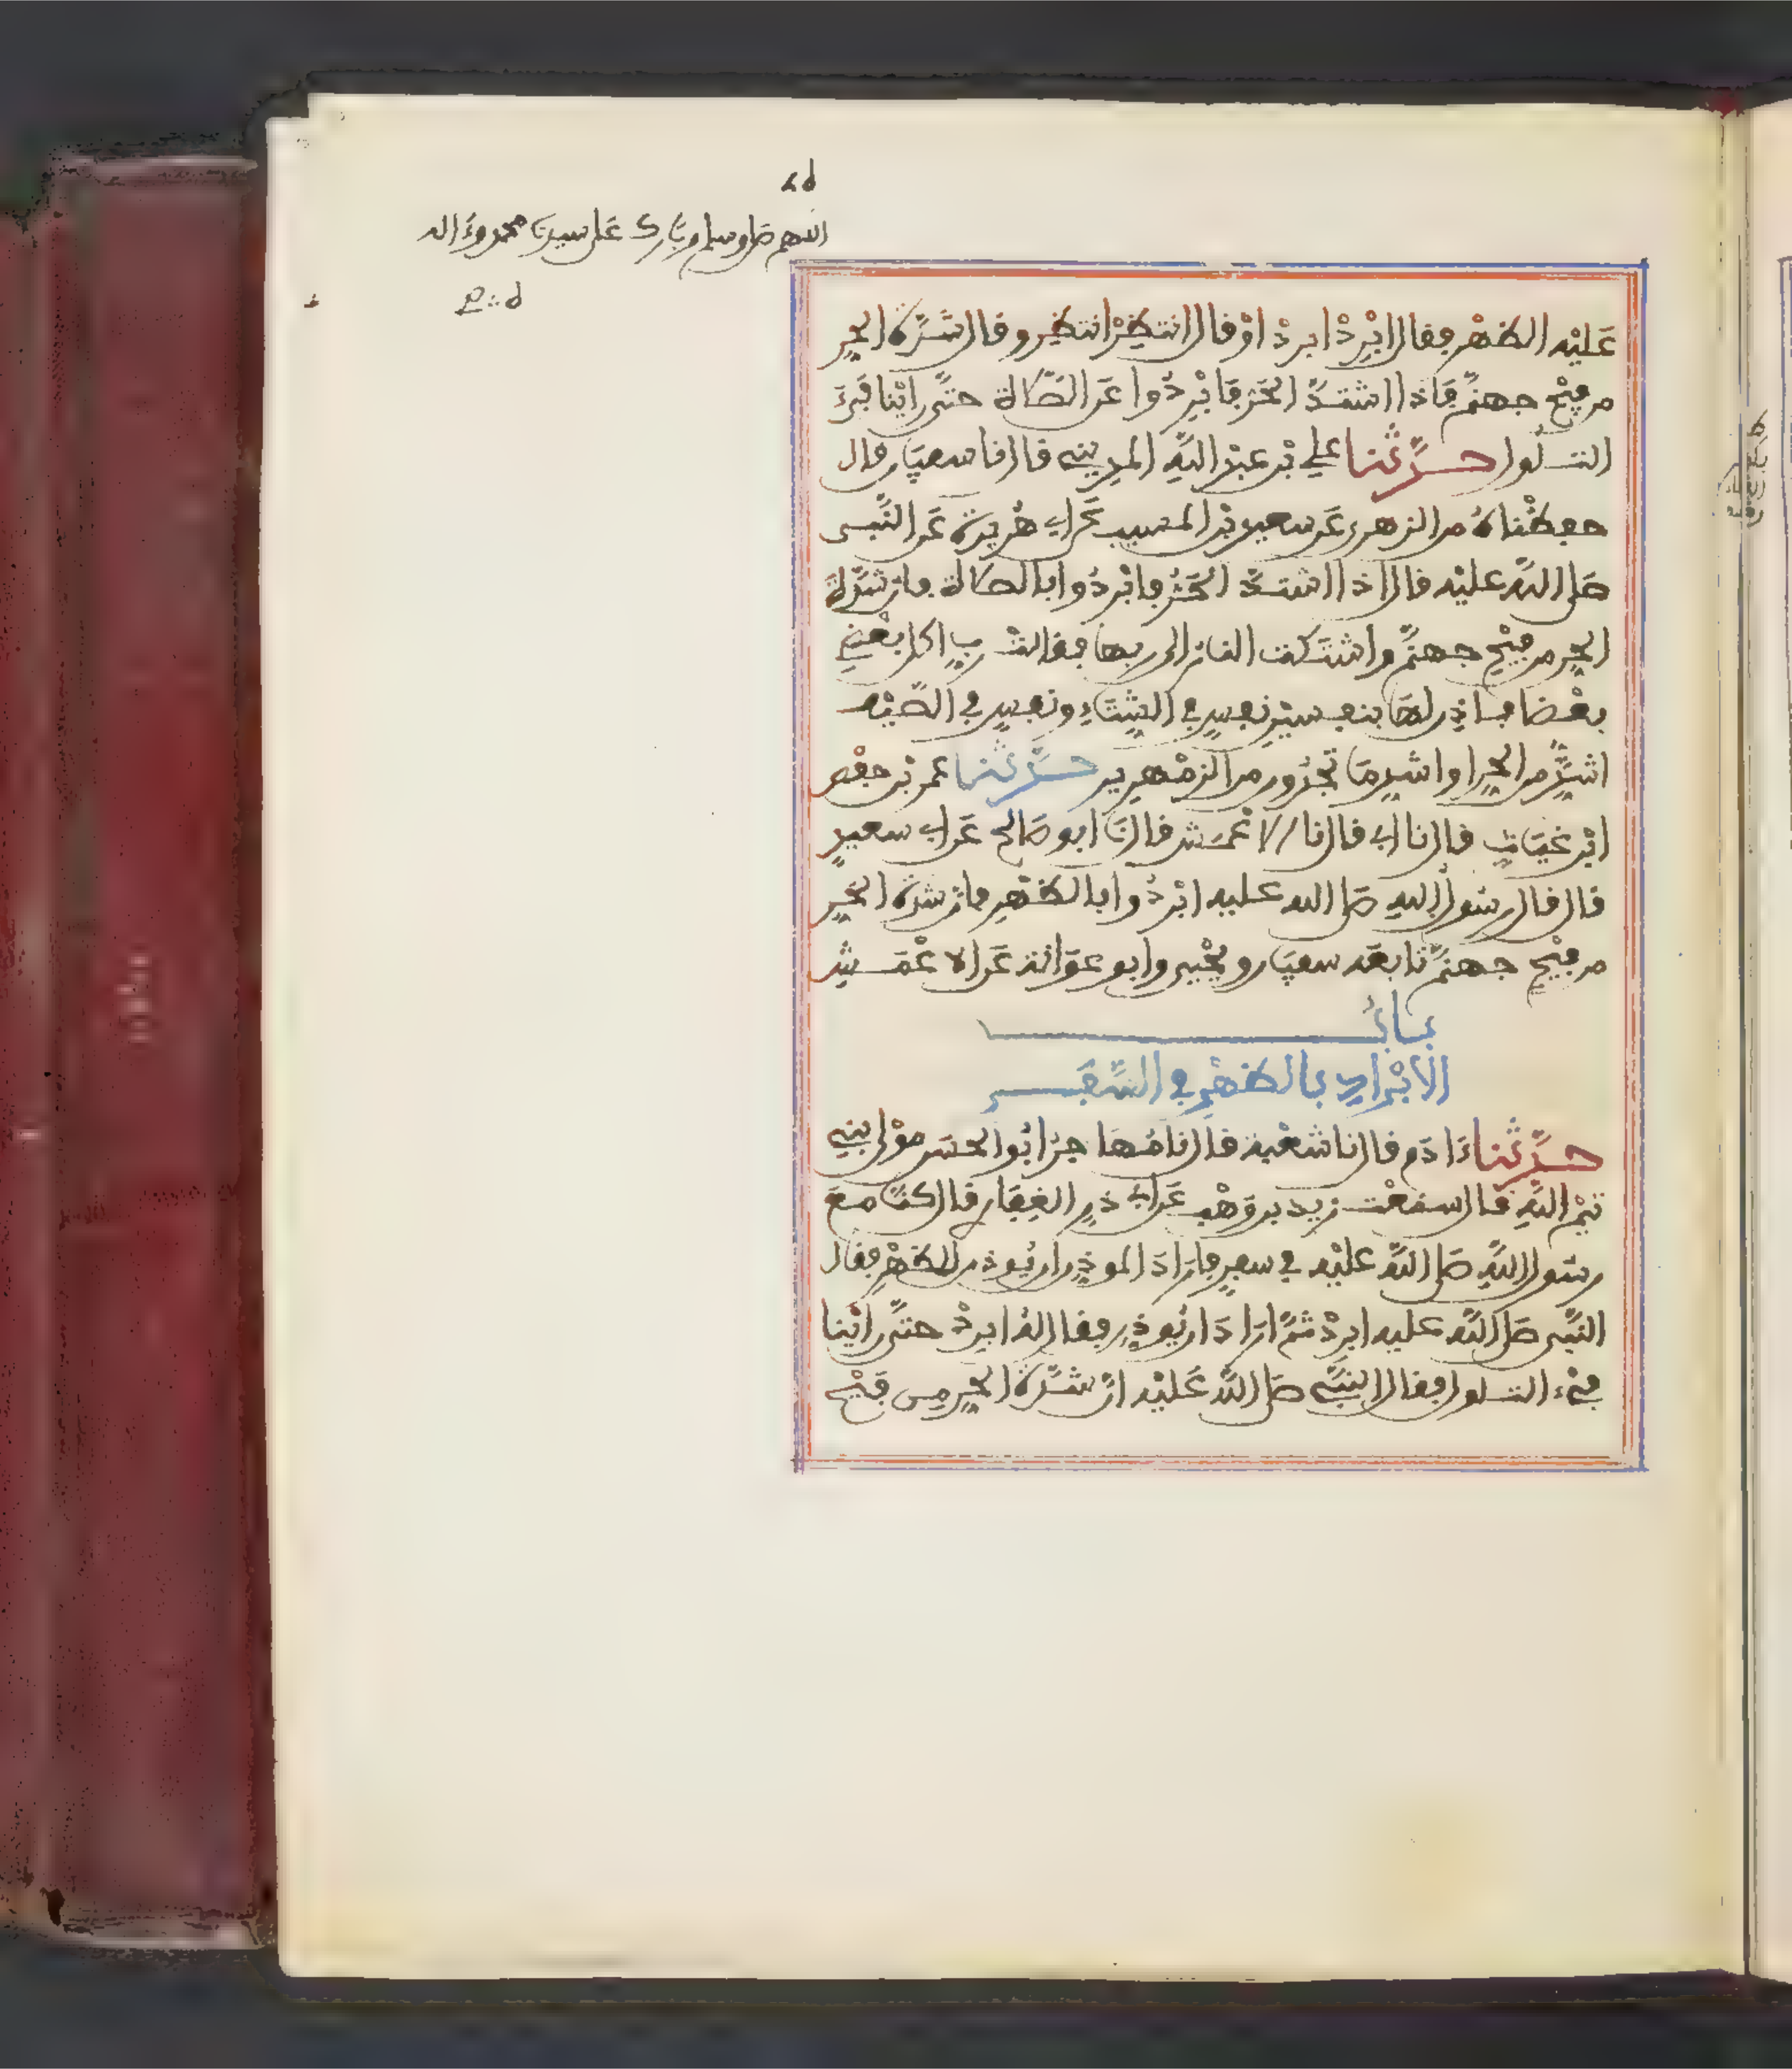 ط
اللهم صل وسلم وبارك على سيدنا محمد وءاله
عَلَيْه الظهْر فقال ابْرِدْ ابردْ اوْ قال انتظِرْ انتظِر وقال شدَّة الحر
من فيْح جهنَّم فاذا اشتدَّ الحَر فابْرِدُوا عَن الصَّلاة حتَّى راينا فَيْءَ
التلُول حدَّثنا علي بْن عبْد اللَّه المديني قال نا سفيَان قال
حفظْناهُ من الزهري عَن سعيد بْن المسيب عَن ابي هُريرة عَن النَّبي
صَلى اللَّه عليْه قال اذا اشتدَّ الحَرُّ فابْردُوا بالصلاة فان شدَّة
الحرِّ من فيْح جهنَّم واشتَكت النار الى ربها فقالت ربِّ اكل بعْضِي
بعْضا فاذن لهَا بنفسيْنِ نفسٍ في الشِّتَاءِ ونفسٍ في الصَّيْف
اشدُّ من الحرِّ او اشد مَا تجدُون من الزمْهرِير حدَّثنا عمر بْن حفْص
ابْن غيَاث قال نا ابي قال نا الاعْمَش قال نَا ابو صَالح عَن ابي سعيدٍ
قال قال رسُول اللهِ صَلى الله عليه ابْردُوا بالظهْرِ فان شدة الحَرِّ
من فيْح جهنَّم تابعَه سفيَان ويحْيى وابو عوَانة عَن الاعْمَش
بـابُ
الابْرادِ بالظهْرِ في السَّفَر
حدَّثنا ءَادَم قال نا شعْبة قال نا مُهَاجرٌ ابُو الحسَن موْلى لبني
تيْم اللَّهِ قال سمعْت زيد بن وَهْب عَن ابي ذرٍ الغِفَاري قال كنَّا مع
رسُول اللَّهِ صَلى اللَّه عليْه في سفرٍ فارَادَ الموذن ان يُوذن للظهْر فقال
النَّبي صَلى اللَّه عليه ابردْ ثمَّ ارَادَ ان يُوذن فقال لهُ ابردْ حتَّى رايْنا
فيْء التلول فقال النبيّ صَلى اللَّه عَليْه انّ شدَّة الحرِ مِن فَيْح